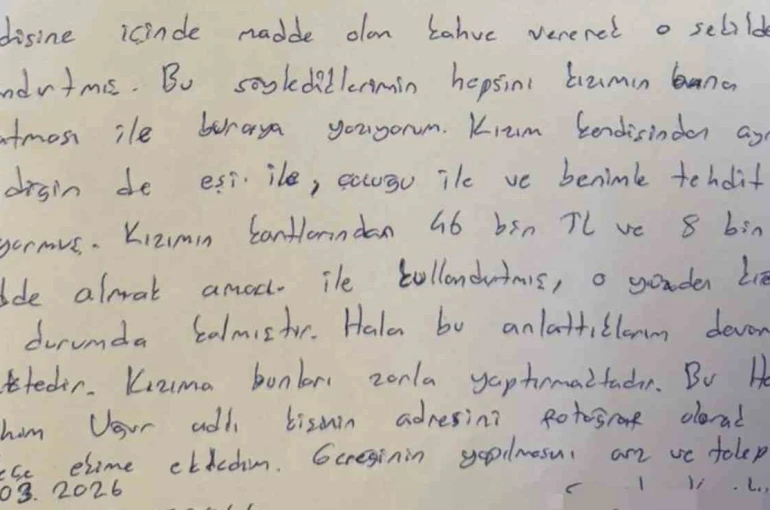 disine içinde madde olan kahve vererek o şekilde
ndırtmış. Bu söylediklerimin hepsini kızımın bana
atması ile buraya yazıyorum. Kızım kendisinden ayr
diğin de eşi ile, çocuğu ile ve benimle tehdit
yormuş. Kızımın kartlarından 46 bin TL ve 8 bin
dde almak amacı ile kullandırtmış, o yüzden kız
durumda kalmıştır. Hala bu anlattıklarım devam
ktedir. Kızıma bunları zorla yaptırmaktadır. Bu Ha
Uğur adlı kişinin adresini fotoğraf olarak
ekime ekledim. Gereğinin yapılmasını arz ve talep
03. 2026